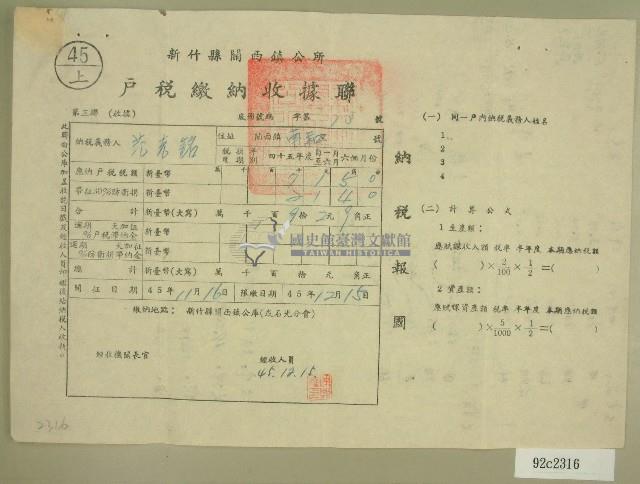 45
上
新竹縣關西鎮公所
戶稅繳納收據聯
第三聯 (收據)
底冊號碼 字第 號
納稅義務人 范 銘
住址 關西鎮 南和 號
稅捐年度期別 四十五年度 自一月至六月 六個月份
應納戶稅稅額 新臺幣 7150
帶征30%防衛捐 新臺幣 2140
合計 新臺幣(大寫) 萬 千 百 9 拾 2 元 9 角正
逾期 天加征 %戶稅滯納金 新臺幣
逾期 天加征 %防衛捐滯納金 新臺幣
總計 新臺幣(大寫) 萬 千 百 拾 元 角正
開征日期 45年11月16日 限繳日期 45年12月15日
繳納地點: 新竹縣關西鎮公庫(或石光分會)
經收機關長官
經收人員
45.12.15.
納稅報國
(一) 同一戶內納稅義務人姓名
1
2
3
4
(二) 計算公式
1 生產類:
應賦課收入額 稅率 半年度 本期應納稅額
( )×2/100×1/2=( )
2 資產類:
應賦課資產額 稅率 半年度 本期應納稅額
( )×5/1000×1/2=( )
國史館臺灣文獻館
TAIWAN HISTORICA
2316
92c2316